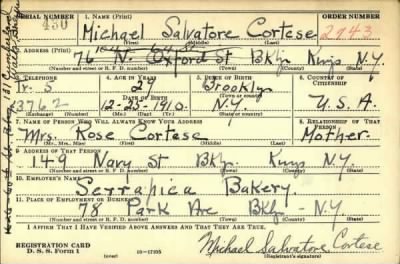 SERIAL NUMBER 1. NAME (Print) ORDER NUMBER
450 Michael Salvatore Cortese 2943
(First) (Middle) (Last)
2. ADDRESS (Print)
76 N. Oxford St Bklyn Kings N.Y.
(Number and street or R. F. D. number) (Town) (County) (State)
3. TELEPHONE 4. AGE IN YEARS 5. PLACE OF BIRTH 6. COUNTRY OF CITIZENSHIP
Tr. 5 29 Brooklyn
DATE OF BIRTH
3762 12-25-1910 N.Y. U.S.A.
(Exchange) (Number) (Mo.) (Day) (Yr.) (State or country)
7. NAME OF PERSON WHO WILL ALWAYS KNOW YOUR ADDRESS 8. RELATIONSHIP OF THAT PERSON
Mrs. Rose Cortese Mother
(Mr., Mrs., Miss) (First) (Middle) (Last)
9. ADDRESS OF THAT PERSON
149 Navy St Bkly. Kings N.Y.
(Number and street or R. F. D. number) (Town) (County) (State)
10. EMPLOYER'S NAME
Serrapica Bakery
11. PLACE OF EMPLOYMENT OR BUSINESS
78 Park Ave Bklyn - N.Y.
(Number and street or R. F. D. number) (Town) (County) (State)
I AFFIRM THAT I HAVE VERIFIED ABOVE ANSWERS AND THAT THEY ARE TRUE.
REGISTRATION CARD
D. S. S. Form 1 (over) Michael Salvatore Cortese
(Registrant's signature)